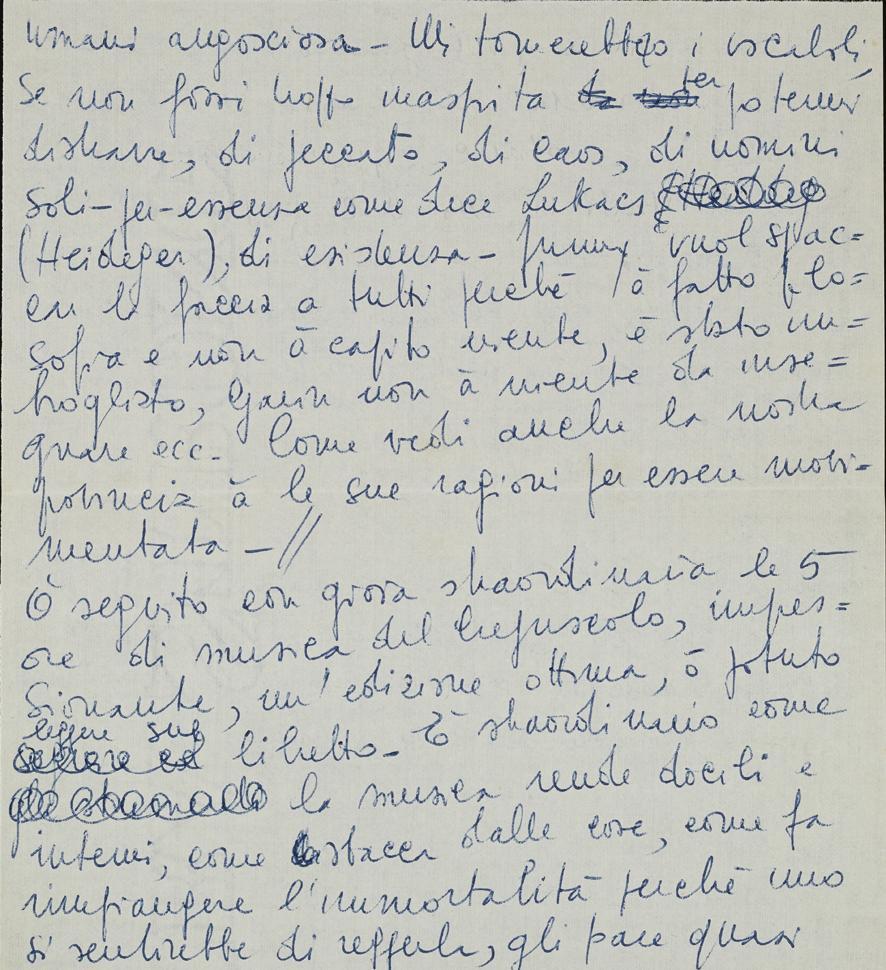 umani angosciosa - Mi tornerebbero i vocaboli,
se non fossi troppo inasprita per potermi
distrarre, di peccato, di caos, di uomini
soli-per-essenza come dice Lukacs
(Heideger), di esistenza - vuol spac=
care la faccia a tutti perché à fatto filo=
sofia e non à capito niente, è stato im=
brogliato, Garin non à niente da inse=
gnare ecc. Come vedi anche la nostra
provincia à le sue ragioni per essere movi-
mentata - //
Ò seguito con gioia straordinaria le 5
ore di musica del Crepuscolo, impres=
sionante, un'edizione ottima, ò potuto
leggere sul libretto - È straordinario come
la musica rende docili e
interni, come stacca dalle cose, come fa
rimpiangere l'immortalità perché uno
si sentirebbe di reggerla, gli pare quasi